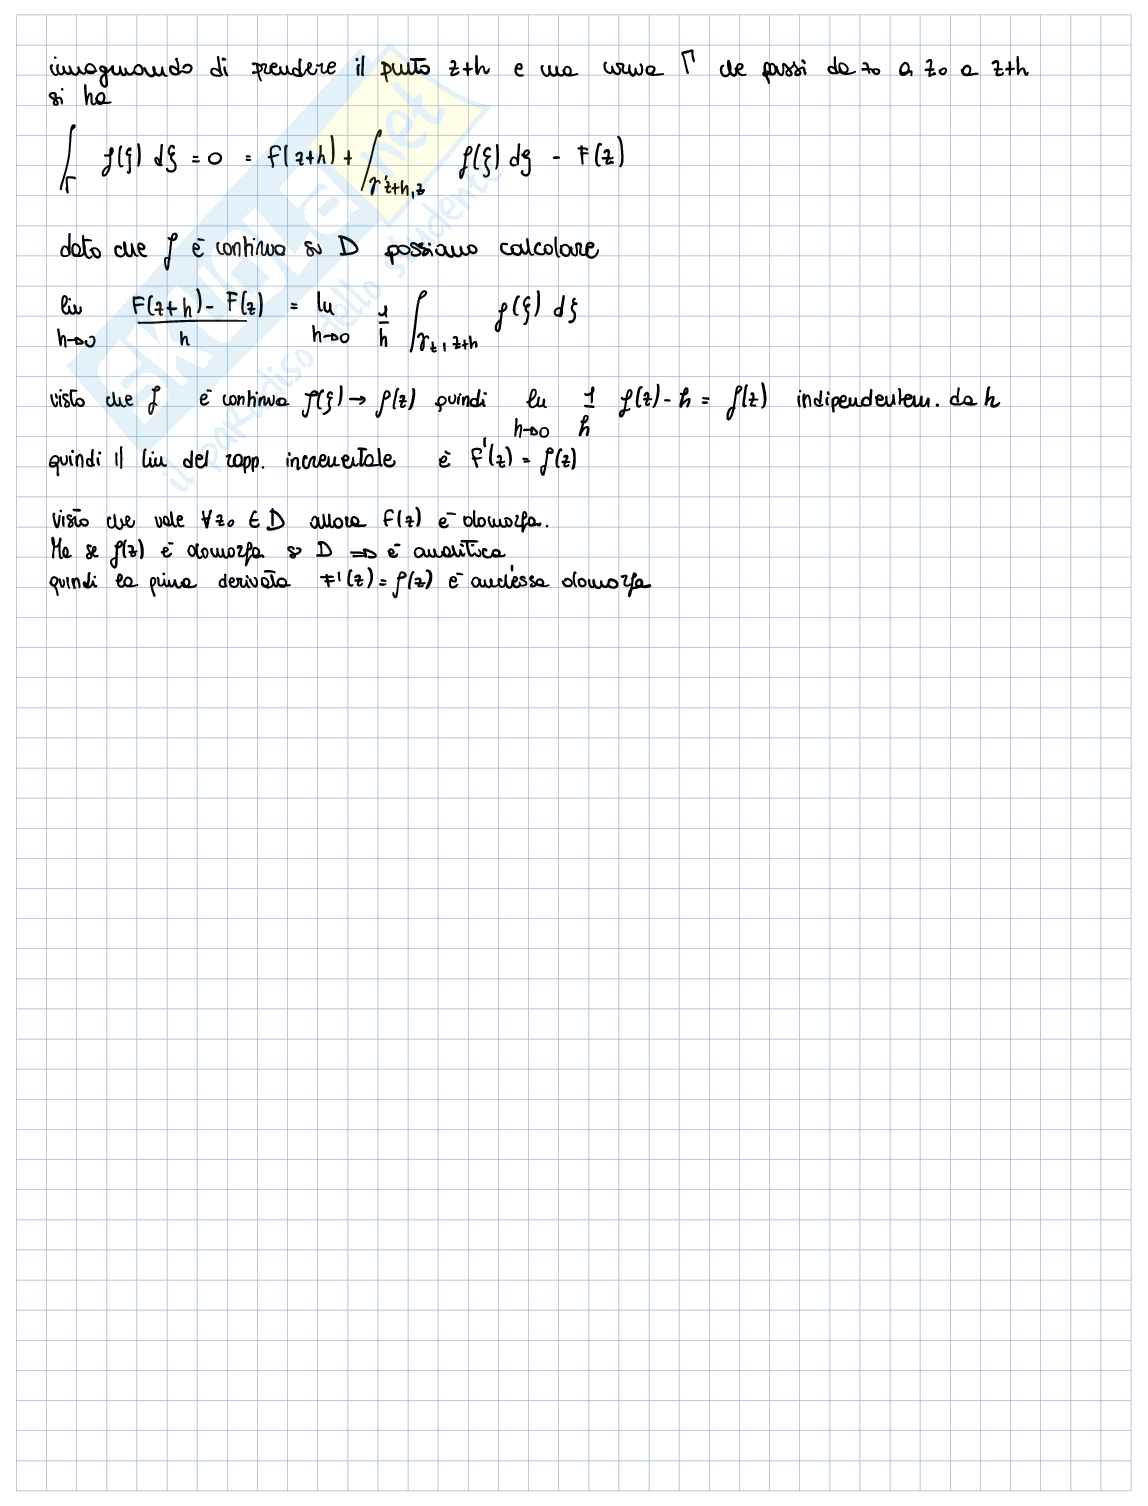 immaginando di prendere il punto z+h e una curva Γ che passi da z₀ a z₀ a z+h
si ha
∫_Γ f(ξ) dξ = 0 = F(z+h) + ∫_γ'z+h,z f(ξ) dξ - F(z)
dato che f è continua su D possiamo calcolare
lim h→0 F(z+h) - F(z) / h = lim h→0 1/h ∫_γz,z+h f(ξ) dξ
visto che f è continua f(ξ) → f(z) quindi lim h→0 1/h f(z)·h = f(z) indipendentem. da h
quindi il lim del rapp. incrementale è F'(z) = f(z)
visto che vale ∀z₀ ∈ D allora F(z) è olomorfa.
Ma se f(z) è olomorfa su D ⇒ è analitica
quindi la prima derivata F'(z) = f(z) è anch'essa olomorfa
SKUOLA.net
il paradiso dello studente